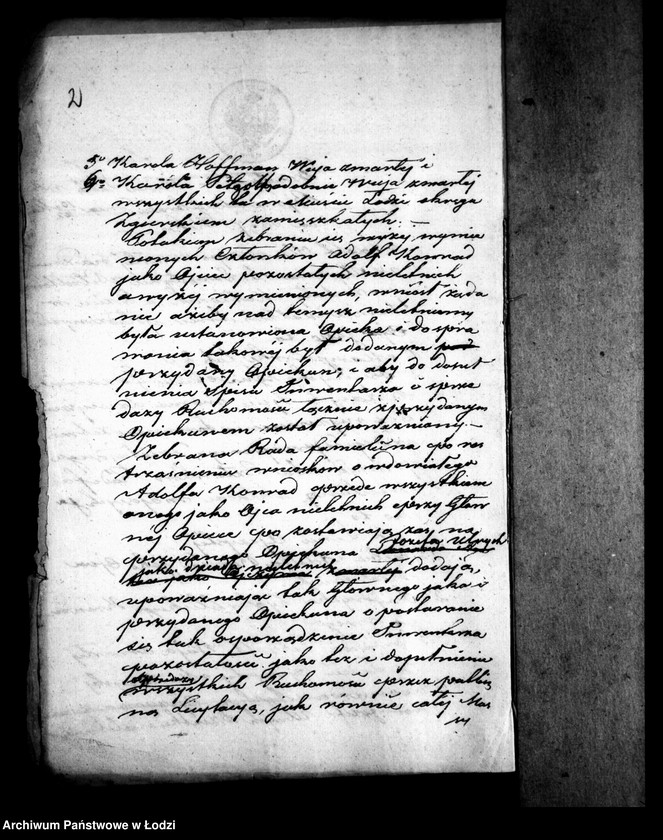 2
5° Karola Hoffman Wuja zmarłej i
6° Karola Wuja zmarłej
wszystkich tu w mieście Łodzi okręgu
Zgierskiem zamieszkałych. —
Po takiem zebraniu się wyżej wymie
nionych Członków Adolf Konrad
jako Ojciec pozostałych nieletnich
a wyżej wymienionych, wniósł żąda
nie ażeby nad temyż nieletniemy
była ustanowiona Opieka i do spra
wowania takowéj był dodanym
przydany Opiekun, i aby do dopeł
nienia Spisu Inwentarza i sprze
daży Ruchomości łącznie z przydanym
Opiekunem został upoważniony. —
Zebrana Rada familijna po roz
trząśnieniu wniosków owdowiałego
Adolfa Konrad przede wszystkiem
onego jako Ojca nieletnich przy Głów
néj Opiece po zostawiają, zaś na
przydanego Opiekuna Józefa
jako dziada nieletnich dodają,
upoważniając tak Głównego jako i
przydanego Opiekuna o postaranie
się tak o sporządzenie Inwentarza
pozostałości jako też i dopełnienia
wszystkich Ruchomości przez publicz
ną Licytacyą, jak równie całej Mas
sy
Archiwum Państwowe w Łodzi